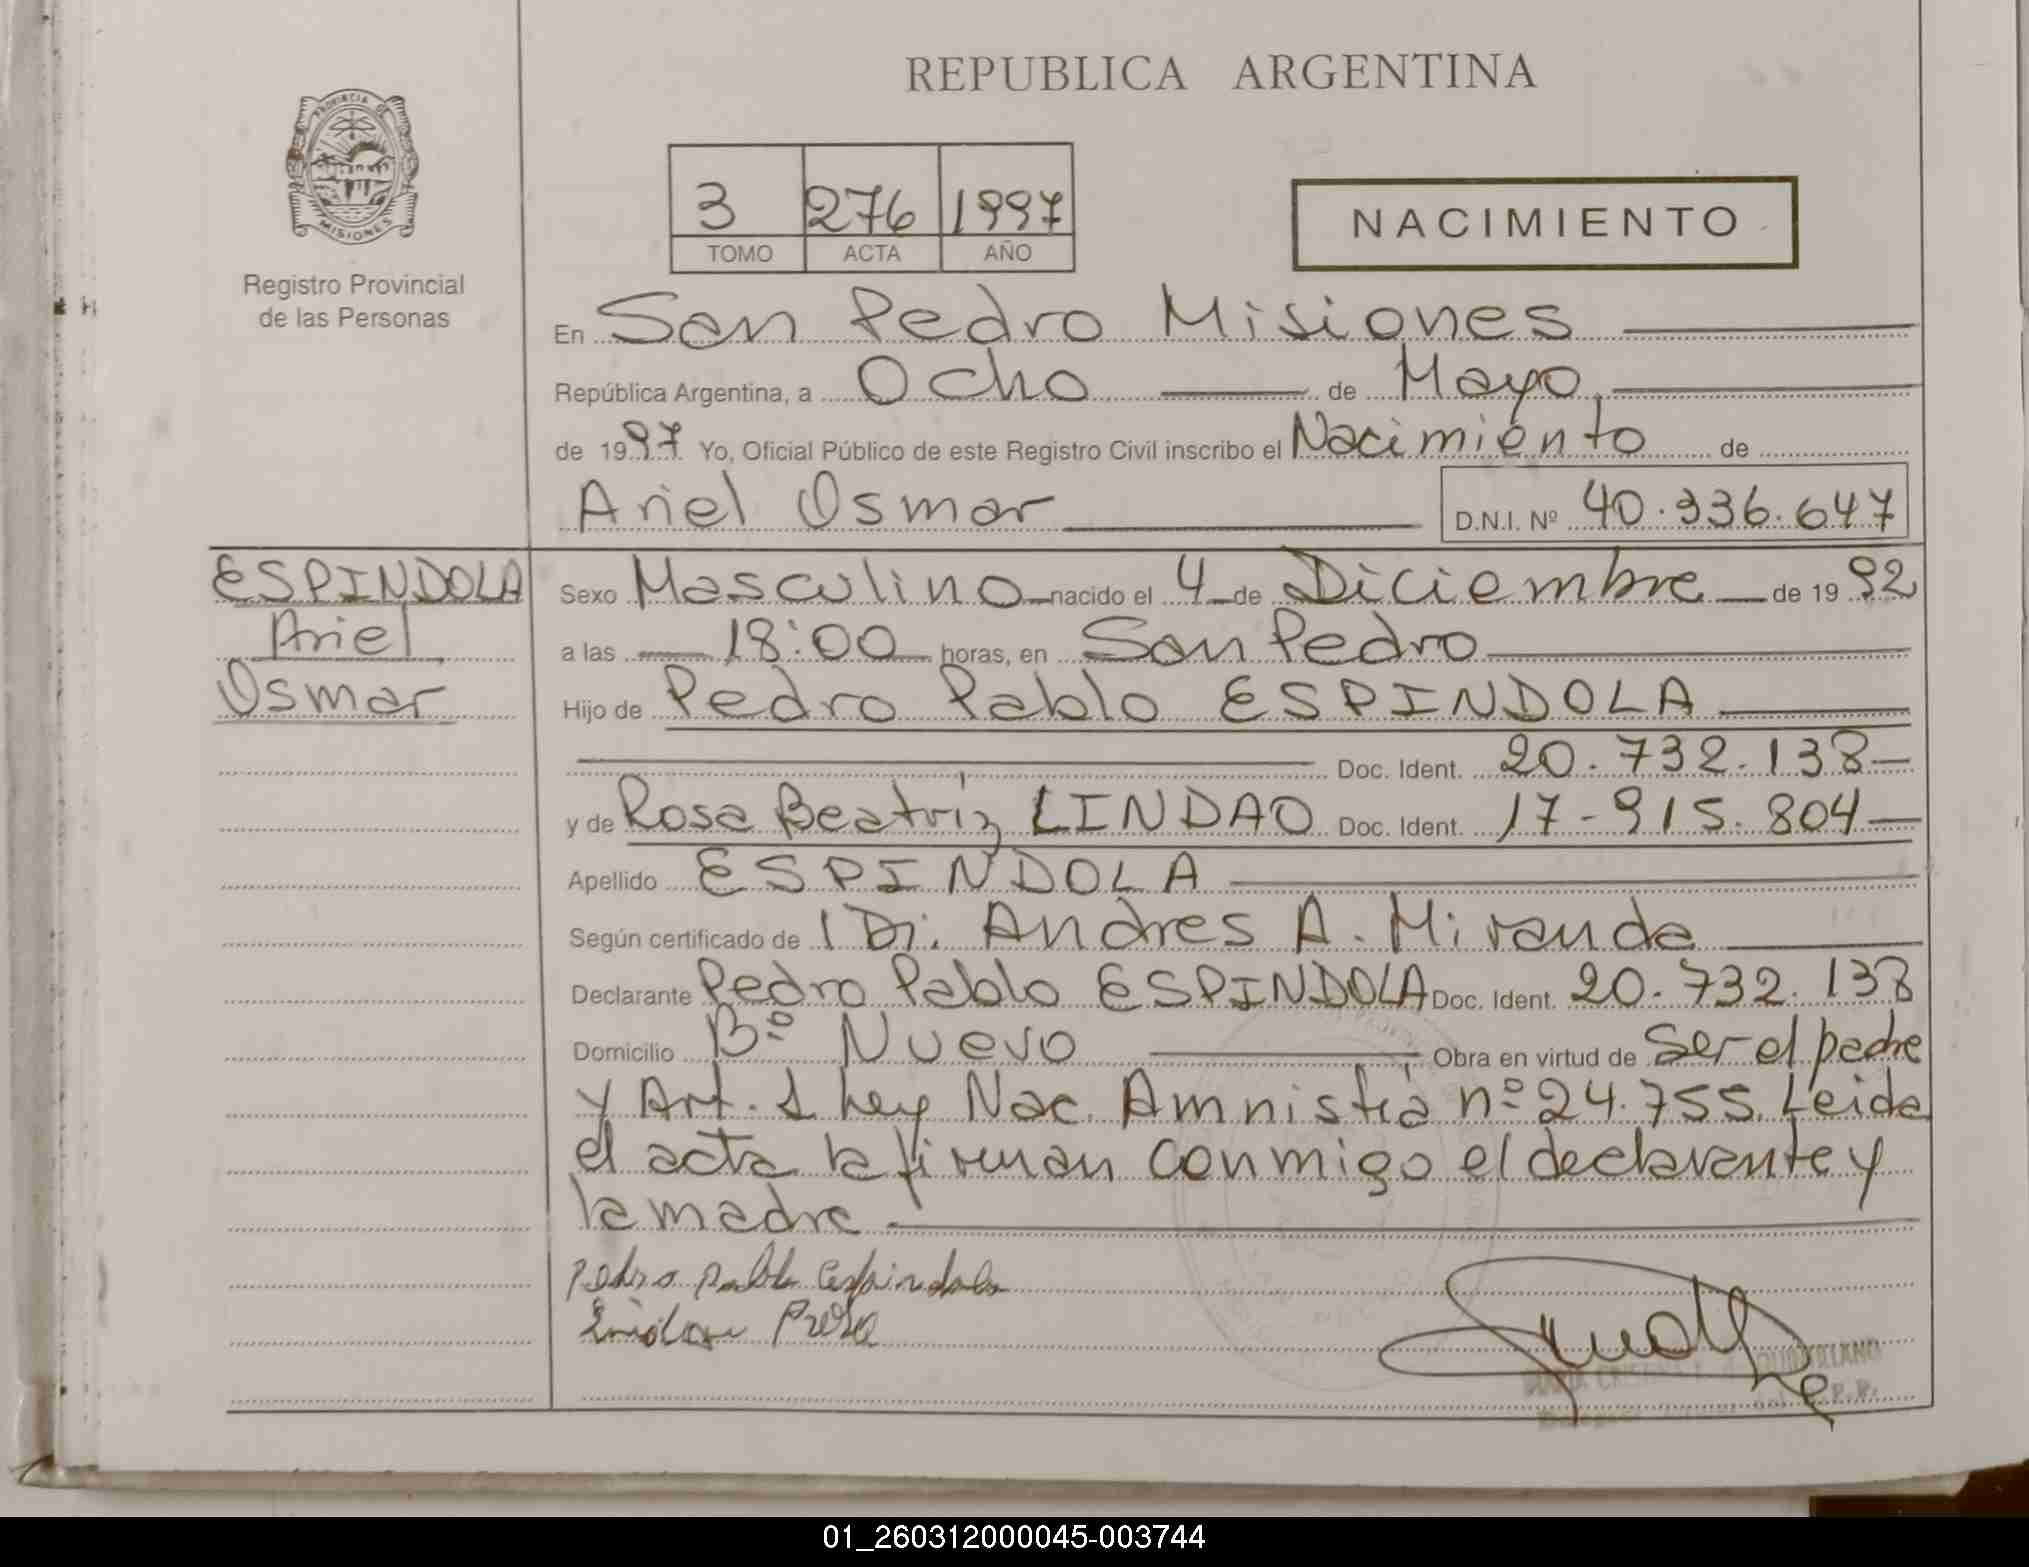 REPUBLICA ARGENTINA
PROVINCIA DE
MISIONES
Registro Provincial
de las Personas
3 276 1997
TOMO ACTA AÑO
NACIMIENTO
En San Pedro Misiones
República Argentina, a Ocho de Mayo
de 1997 Yo, Oficial Público de este Registro Civil inscribo el Nacimiento de
Ariel Osmar D.N.I. Nº 40.336.647
ESPINDOLA
Ariel
Osmar
Sexo Masculino nacido el 4 de Diciembre de 1992
a las 18:00 horas, en San Pedro
Hijo de Pedro Pablo ESPINDOLA
Doc. Ident. 20.732.138
y de Rosa Beatriz LINDAO Doc. Ident. 17-915.804
Apellido ESPINDOLA
Según certificado de Andres A. Miranda
Declarante Pedro Pablo ESPINDOLA Doc. Ident. 20.732.138
Domicilio Bº Nuevo Obra en virtud de Ser el padre
y Art. 1 Ley Nac. Amnistia nº 24.755. Leida
el acta la firman conmigo el declarante y
la madre.
Pedro Pablo Espindola
01_260312000045-003744